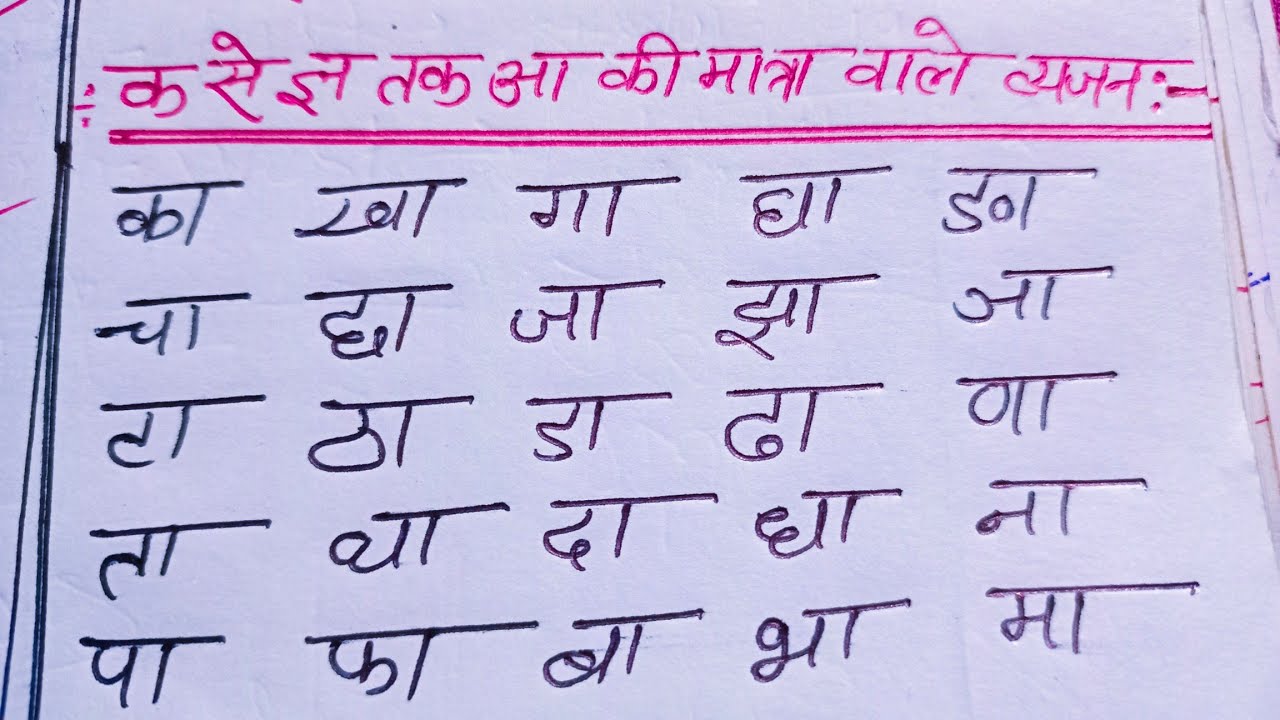 क से ज्ञ तक आ की मात्रा वाले व्यजन :-
का खा गा घा ङा
चा छा जा झा ञा
टा ठा डा ढा णा
ता था दा धा ना
पा फा बा भा मा